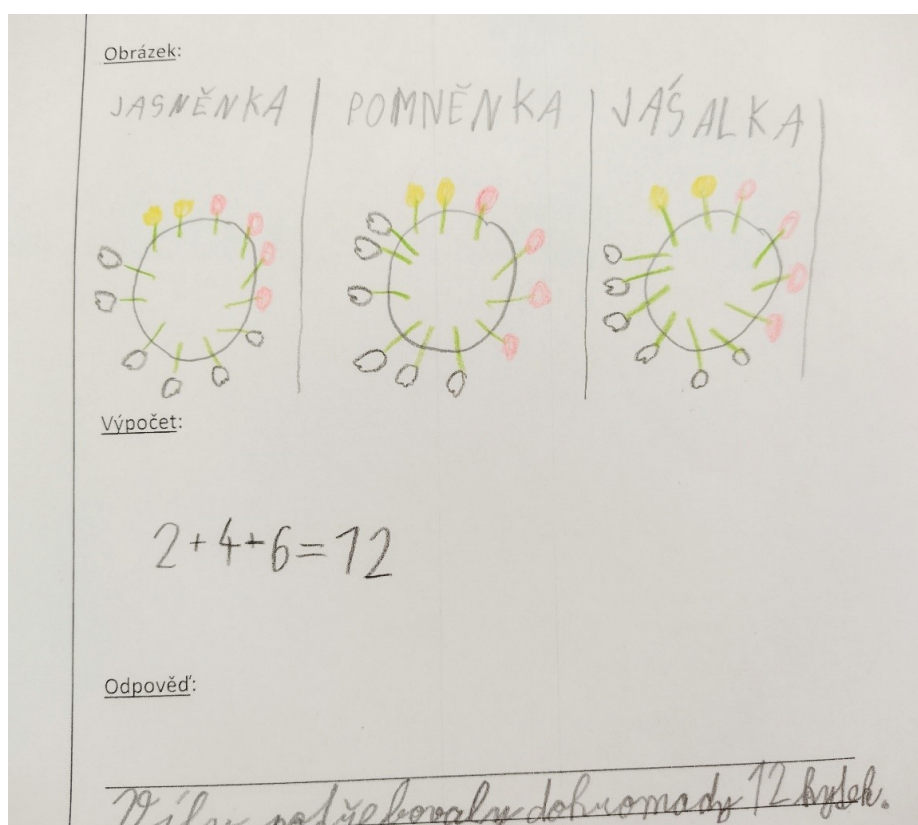 Obrázek:
JASNĚNKA POMNĚNKA JÁSALKA
Výpočet:
2+4+6=12
Odpověď:
Víly potřebovaly dohromady 12 kytek.